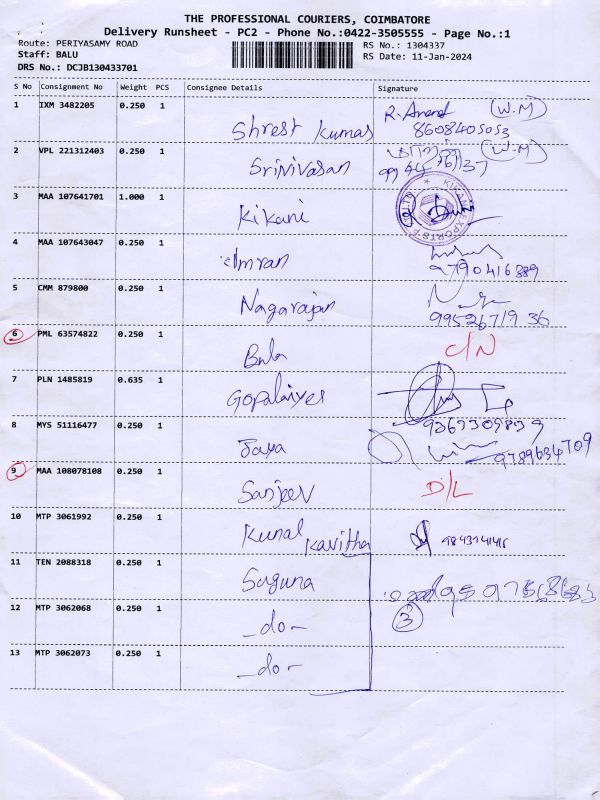 THE PROFESSIONAL COURIERS, COIMBATORE
Delivery Runsheet - PC2 - Phone No.:0422-3505555 - Page No.:1
Route: PERIYASAMY ROAD
RS No.: 1304337
Staff: BALU
RS Date: 11-Jan-2024
DRS No.: DCJB130433701
S No Consignment No Weight PCS Consignee Details Signature
1 IXM 3482205 0.250 1 R. Anand W.M
Shrest Kumar 8608405053
2 VPL 221312403 0.250 1 W.M
Srinivasan
3 MAA 107641701 1.000 1 KIKANI EXPORTS P LTD
Kikani
4 MAA 107643047 0.250 1
Imran 9790416389
5 CMM 879800 0.250 1
Nagarajan 9952671936
6 PML 63574822 0.250 1 C/N
Bala
7 PLN 1485819 0.635 1
Gopalaiyer
8 MYS 51116477 0.250 1 9367309839
Jaya 9789634709
9 MAA 108078108 0.250 1 D/L
Sanjeev
10 MTP 3061992 0.250 1
Kunal Kavitha
11 TEN 2088318 0.250 1
Suguna
12 MTP 3062068 0.250 1 3
-do-
13 MTP 3062073 0.250 1
-do-